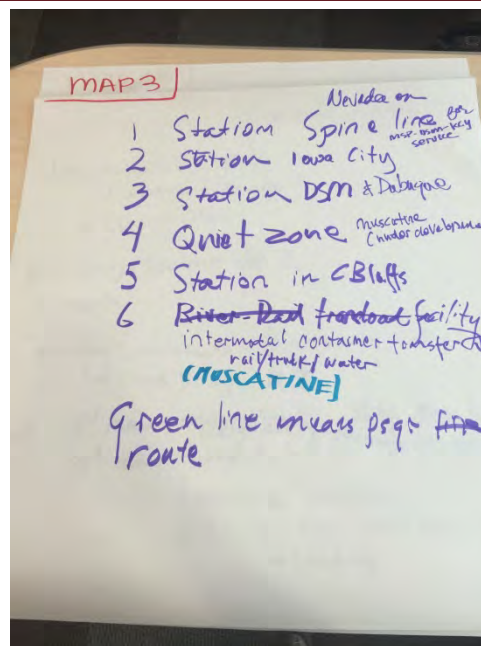 MAP 3
Nevada on
1 Station Spine line for
MSP-DSM-KCY
service
2 Station Iowa City
3 Station DSM & Dubuque
4 Quiet zone muscatine
(under development
5 Station in CBluffs
6 River-Rail transload facility
intermodal container transfer
rail/truck/water
(MUSCATINE)
Green line means psgr
route